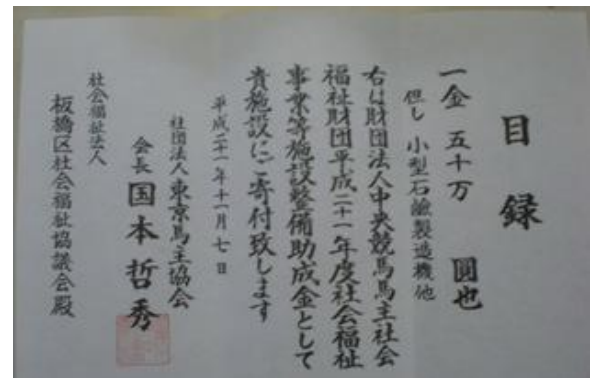 目録
一金 五十万 圓也
但し 小型石鹼製造機他
右は財団法人中央競馬馬主社会
福祉財団平成二十一年度社会福祉
事業等施設整備助成金として
貴施設にご寄付致します
平成二十一年十一月七日
社団法人東京馬主協会
会長 国本哲秀
社会福祉法人
板橋区社会福祉協議会殿